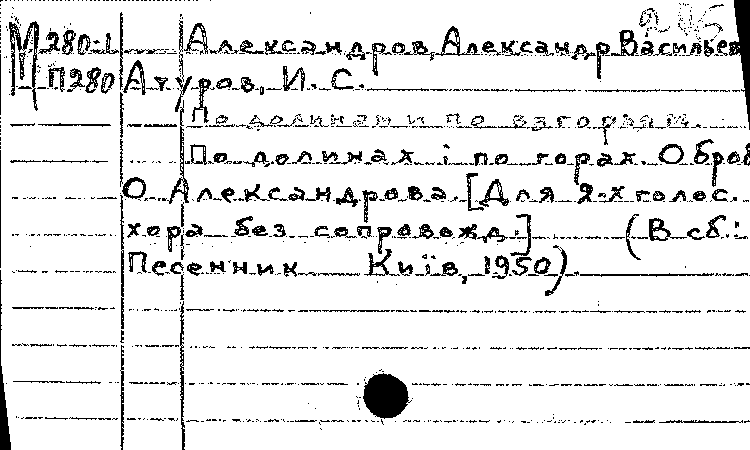 М 280-1 Александров, Александр Васильев
П280 Атуров, И. С.
По долинам и по взгорьям.
По долинах і по горах. Оброб
О Александрова. [Для 2-х голос.
хора без сопровожд.] (В сб.:
Песенник Київ, 1950).